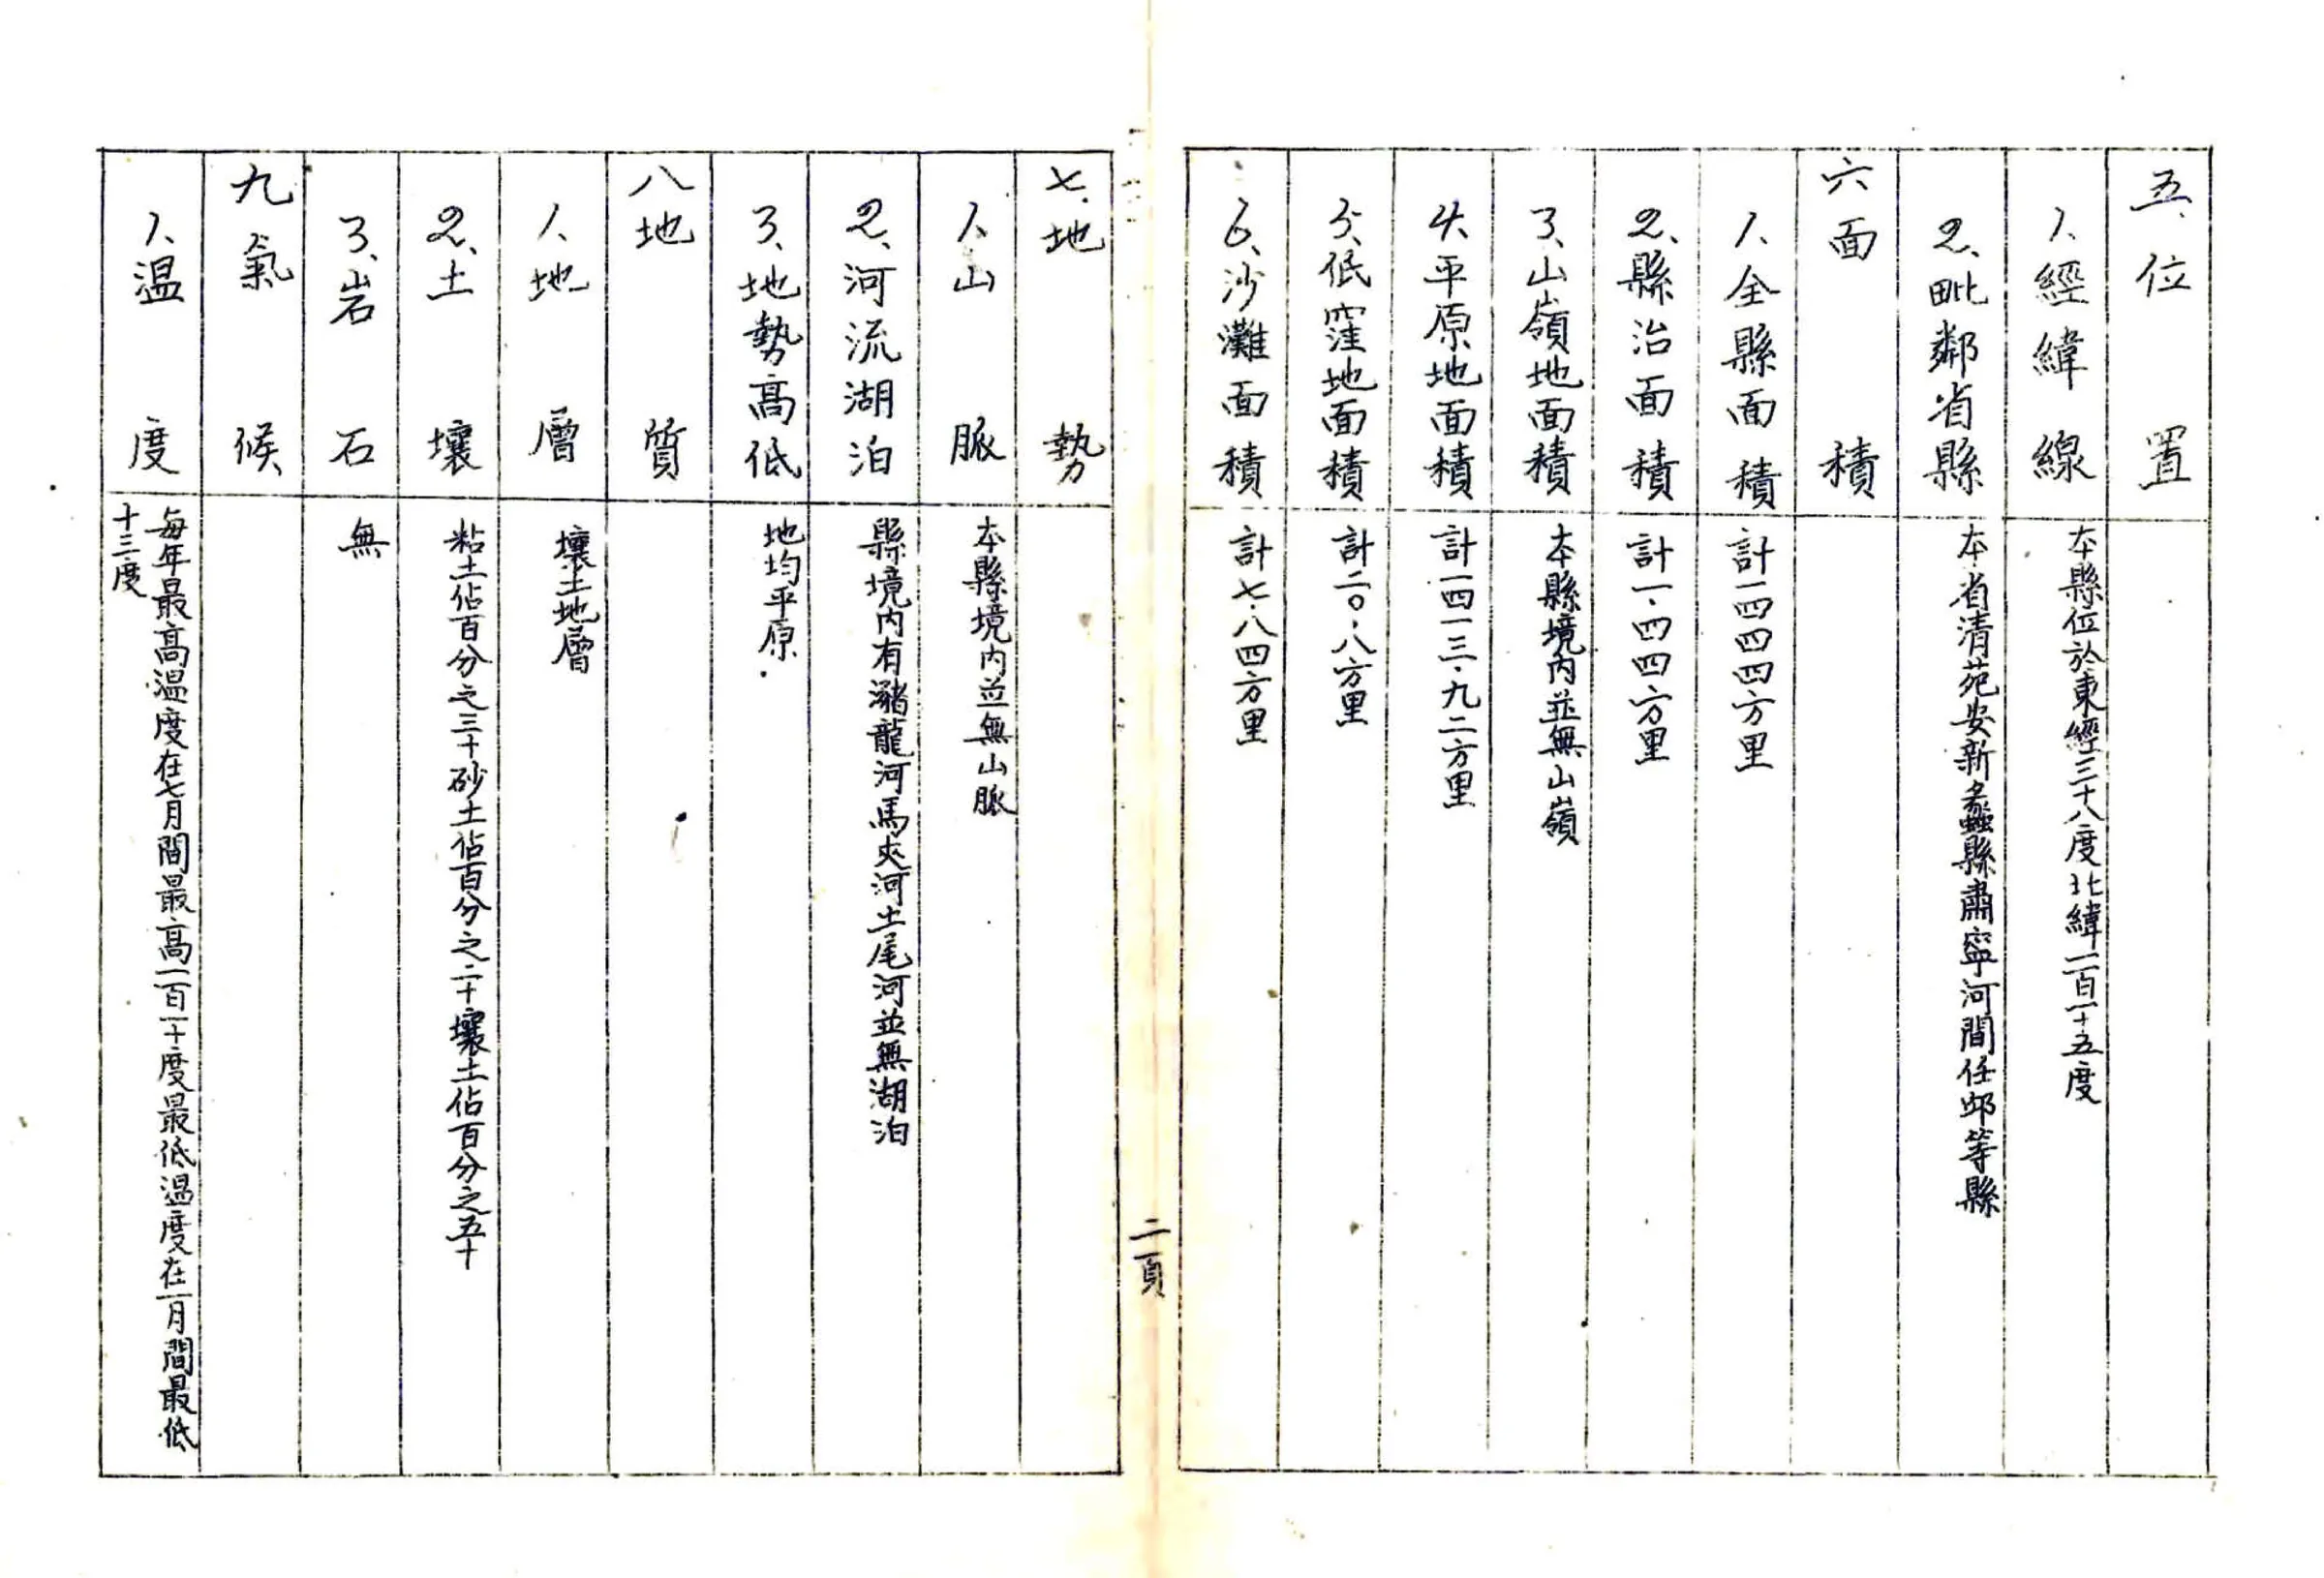 五、位置
1、經緯線 本縣位於東經三十八度北緯一百一十五度
2、毗鄰省縣 本省清苑安新蠡縣肅寧河間任邱等縣
六面積
1、全縣面積 計一四四四方里
2、縣治面積 計一.四四方里
3、山嶺地面積 本縣境內並無山嶺
4、平原地面積 計一四一三.九二方里
5、低窪地面積 計二〇.八方里
6、沙灘面積 計七.八四方里
二頁
七.地勢
1、山脈 本縣境內並無山脈
2、河流湖泊 縣境內有瀦龍河馬夾河土尾河並無湖泊
3、地勢高低 地均平原.
八地質
1、地層 壤土地層
2、土壤 粘土佔百分之三十砂土佔百分之二十壤土佔百分之五十
3、岩石 無
九氣候
1、溫度 每年最高溫度在七月間最高一百一十度最低溫度在一月間最低
十三度